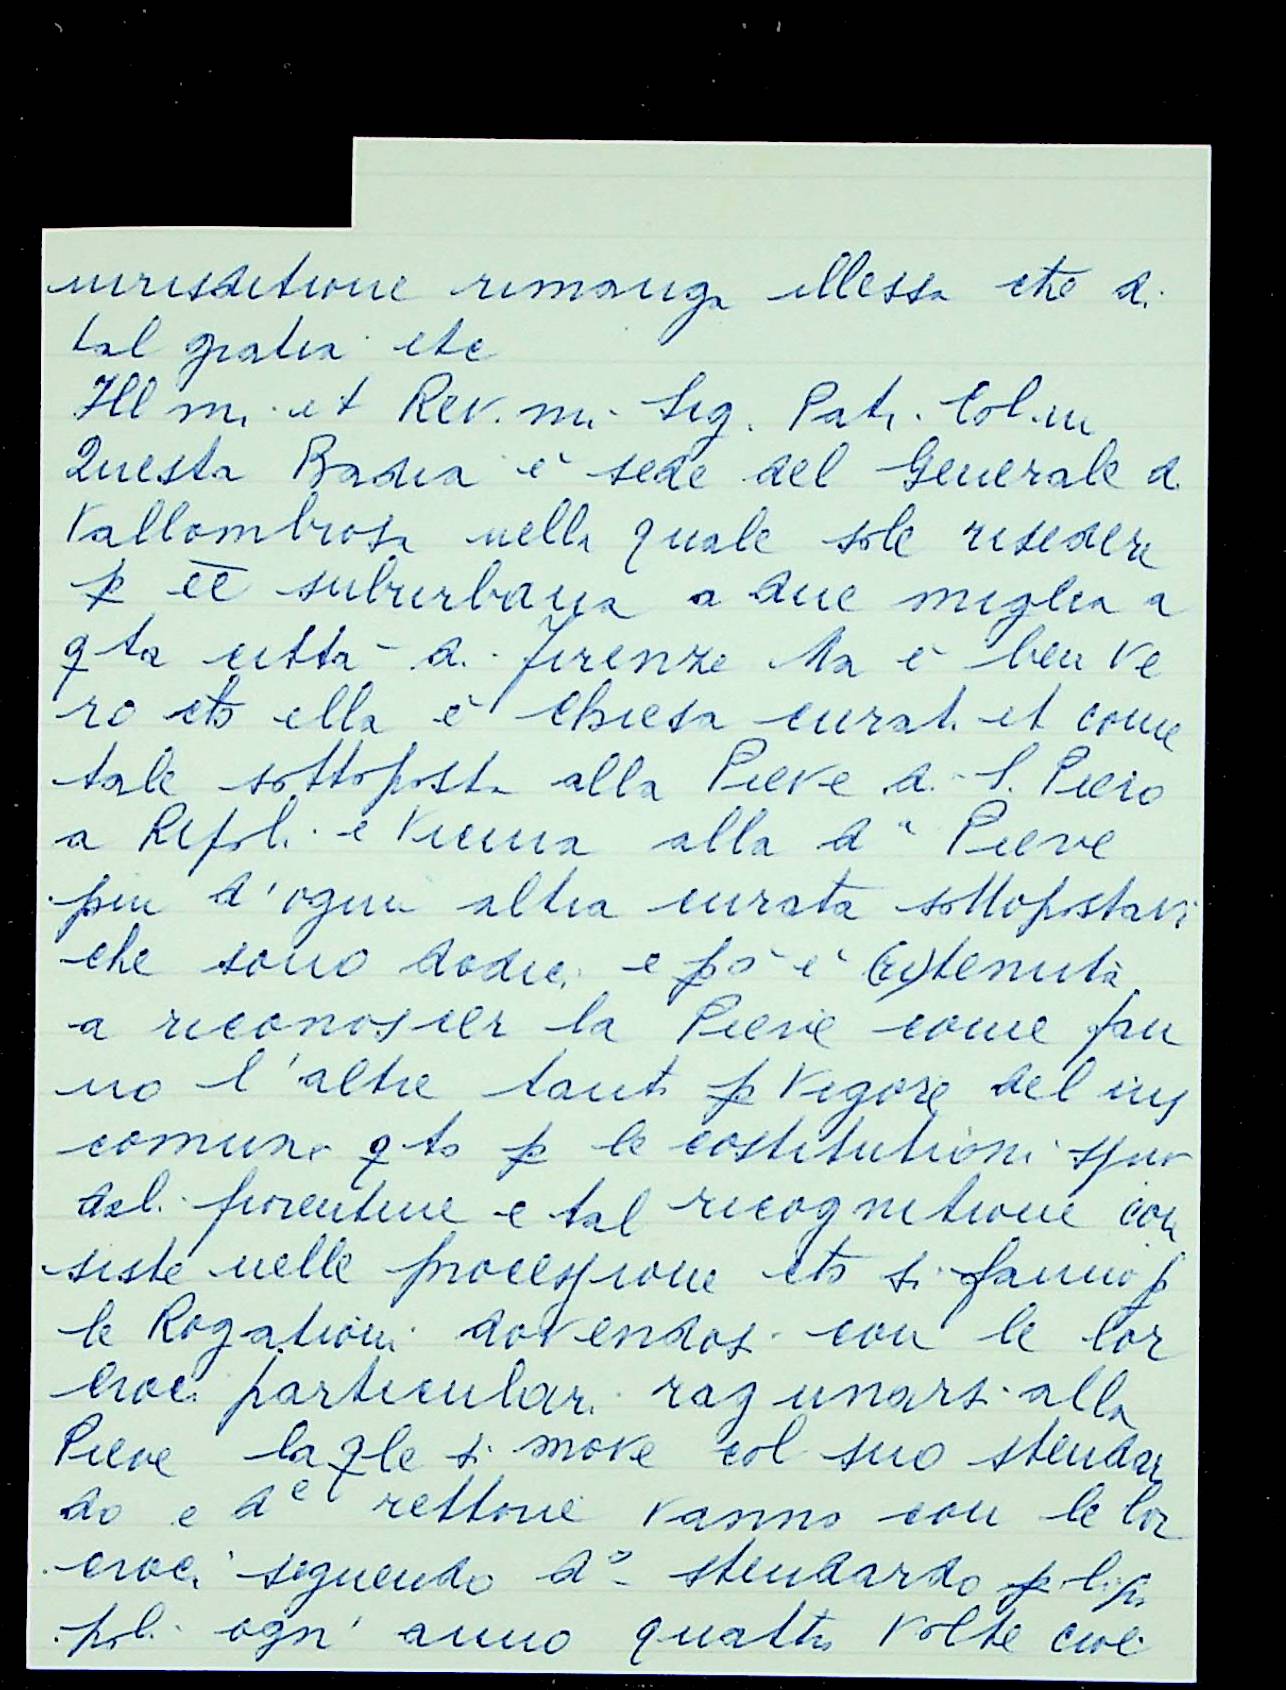 iurisditione rimanga illessa che di
tal gratia etc
Ill mi et Rev. mi Sig. Pat. Col.mi
Questa Badia è sede del Generale di
Vallombrosa nella quale sole risedere
p eē suburbana a due miglia a
qta citta di Firenze Ma è ben ve
ro chò ella è Chiesa curat. et come
tale sottoposta alla Pieve di S. Piero
a Ripoli e vicina alla da Pieve
piu d'ogni altra curata sottopostavi
che sono dodici e pò è (ri)tenuta
a riconoscier la Pieve come fan
no l'altre tanto p vigore del ius
comune qto p le costitutioni sino
dali fiorentine e tal ricognitione con
siste nelle processione chò si fanno p
le Rogationi dovendosi con le lor
croci particulari ragunarsi alla
Pieve la qle si move col suo stendar
do e de rettorie vanno con le lor
croci seguendo do stendardo p li po
poli ogn' anno quattro volte cioè